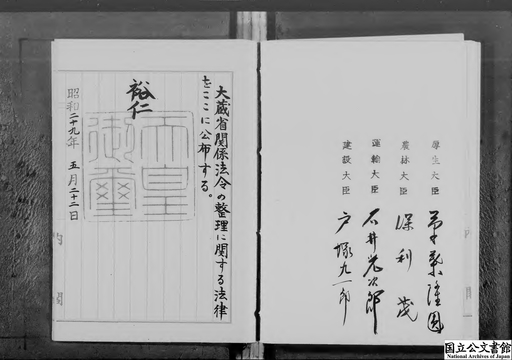 厚生大臣 草葉隆圓
農林大臣 保利茂
運輸大臣 石井光次郎
建設大臣 戸塚九一郎
大蔵省関係法令の整理に関する法律
をここに公布する。
裕仁
天皇
御璽
昭和二十九年 五月二十二日
内閣
国立公文書館
National Archives of Japan